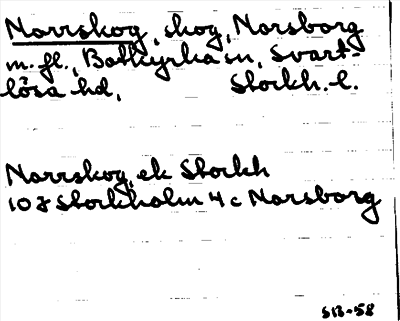 Norrskog, skog, Norsborg
m. fl., Botkyrka sn, Svart-
lösa hd, Stockh. l.
Norrskog, ek Stockh
10 J Stockholm 4 c Norsborg
SB-58